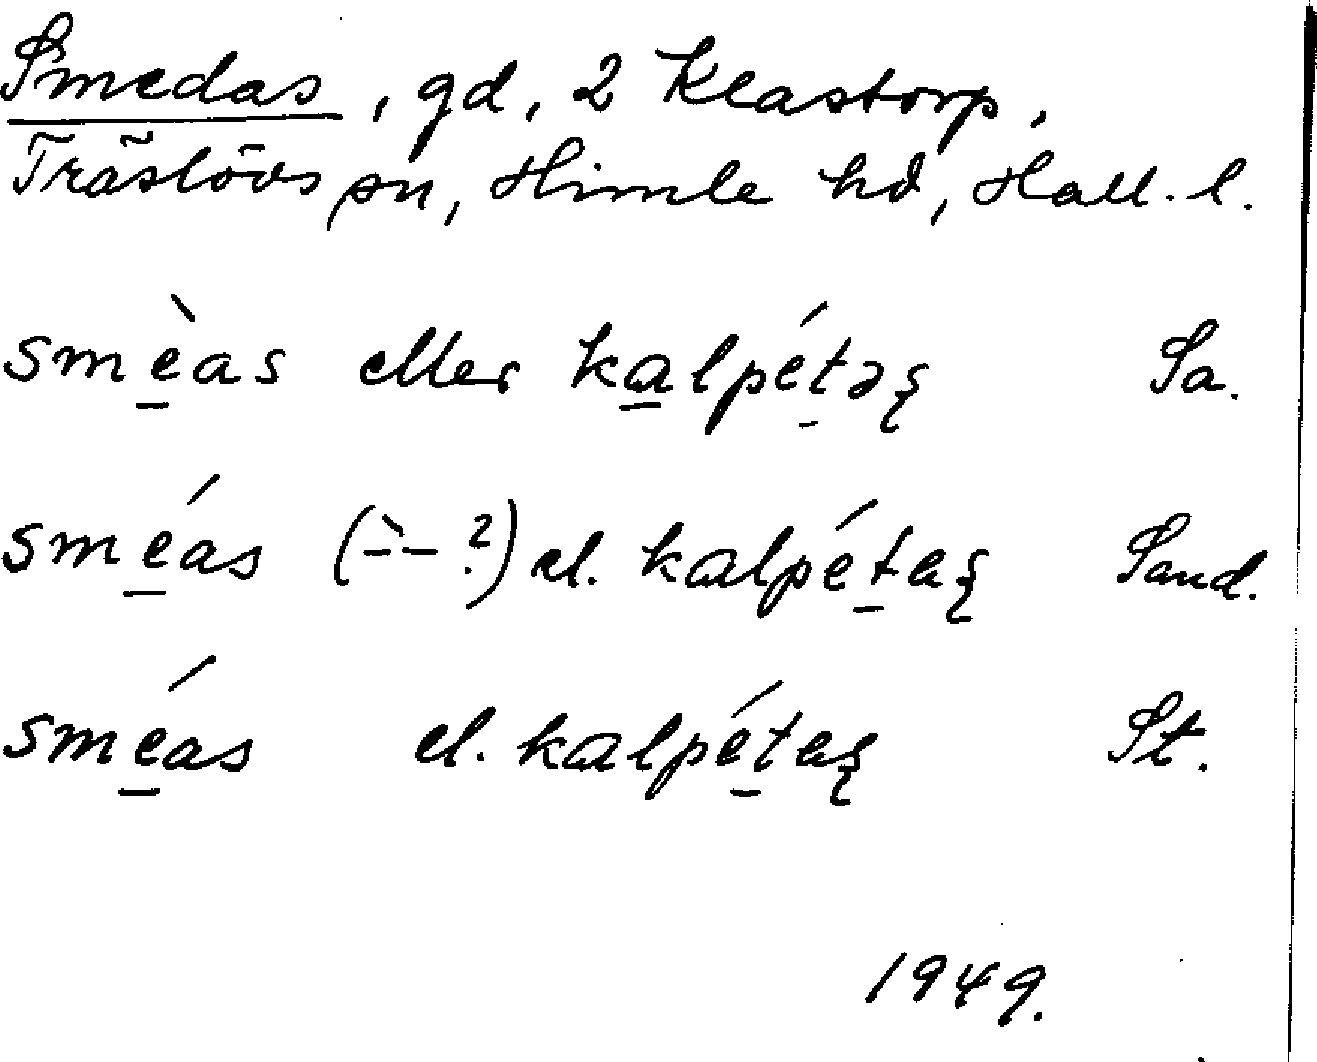 Smedas, gd, 2 Klastorp,
Träslövs sn, Himle hd, Hall. l.
smèas eller kalpétəş Sa.
sméas (-̀- ?) el. kalpétaş Sand.
sméas el. kalpétaş St.
1949.